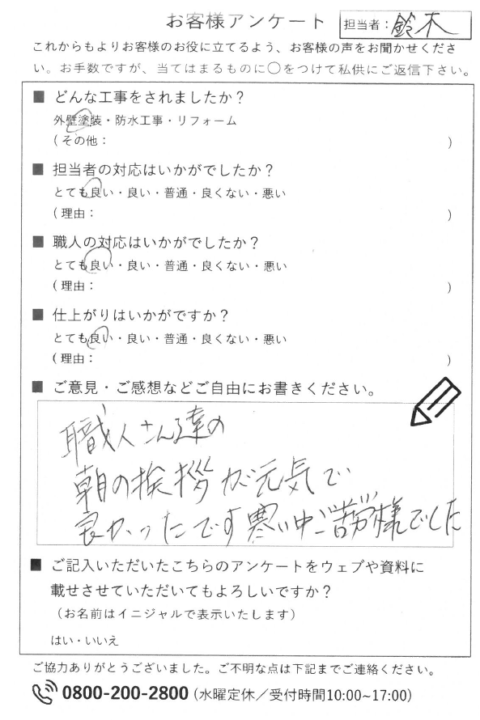 お客様アンケート
担当者：鈴木
これからもよりお客様のお役に立てるよう、お客様の声をお聞かせくださ
い。お手数ですが、当てはまるものに〇をつけて私供にご返信下さい。
■ どんな工事をされましたか？
外壁塗装・防水工事・リフォーム
（その他： ）
■ 担当者の対応はいかがでしたか？
とても良い・良い・普通・良くない・悪い
（理由： ）
■ 職人の対応はいかがでしたか？
とても良い・良い・普通・良くない・悪い
（理由： ）
■ 仕上がりはいかがですか？
とても良い・良い・普通・良くない・悪い
（理由： ）
■ ご意見・ご感想などご自由にお書きください。
職人さん達の
朝の挨拶が元気で
良かったです寒い中ご苦労様でした
■ ご記入いただいたこちらのアンケートをウェブや資料に
載せさせていただいてもよろしいですか？
（お名前はイニシャルで表示いたします）
はい・いいえ
ご協力ありがとうございました。ご不明な点は下記までご連絡ください。
0800-200-2800（水曜定休／受付時間10:00~17:00）